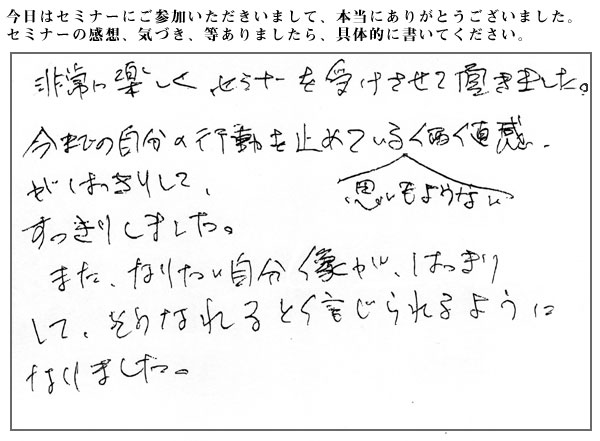 今日はセミナーにご参加いただきいまして、本当にありがとうございました。
セミナーの感想、気づき、等ありましたら、具体的に書いてください。
非常に楽しくセミナーを受けさせて頂きました。
今までの自分の行動を止めている価値感
思いもようない
がはっきりして、
すっきりしました。
また、なりたい自分像が、はっきり
して、そうなれると信じられるように
なりました。